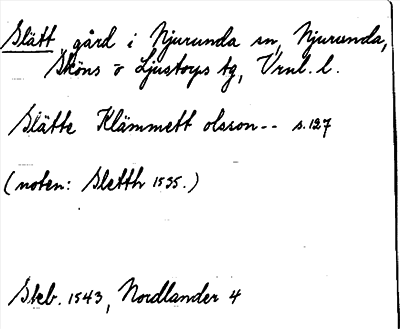 Slätt, gård i Njurunda sn, Njurunda,
Sköns o Ljustorps tg, Vrnl. l.
Slätte Klämmett olsson-- s.127
(noten: Sletth 1535.)
Skb. 1543, Nordlander 4